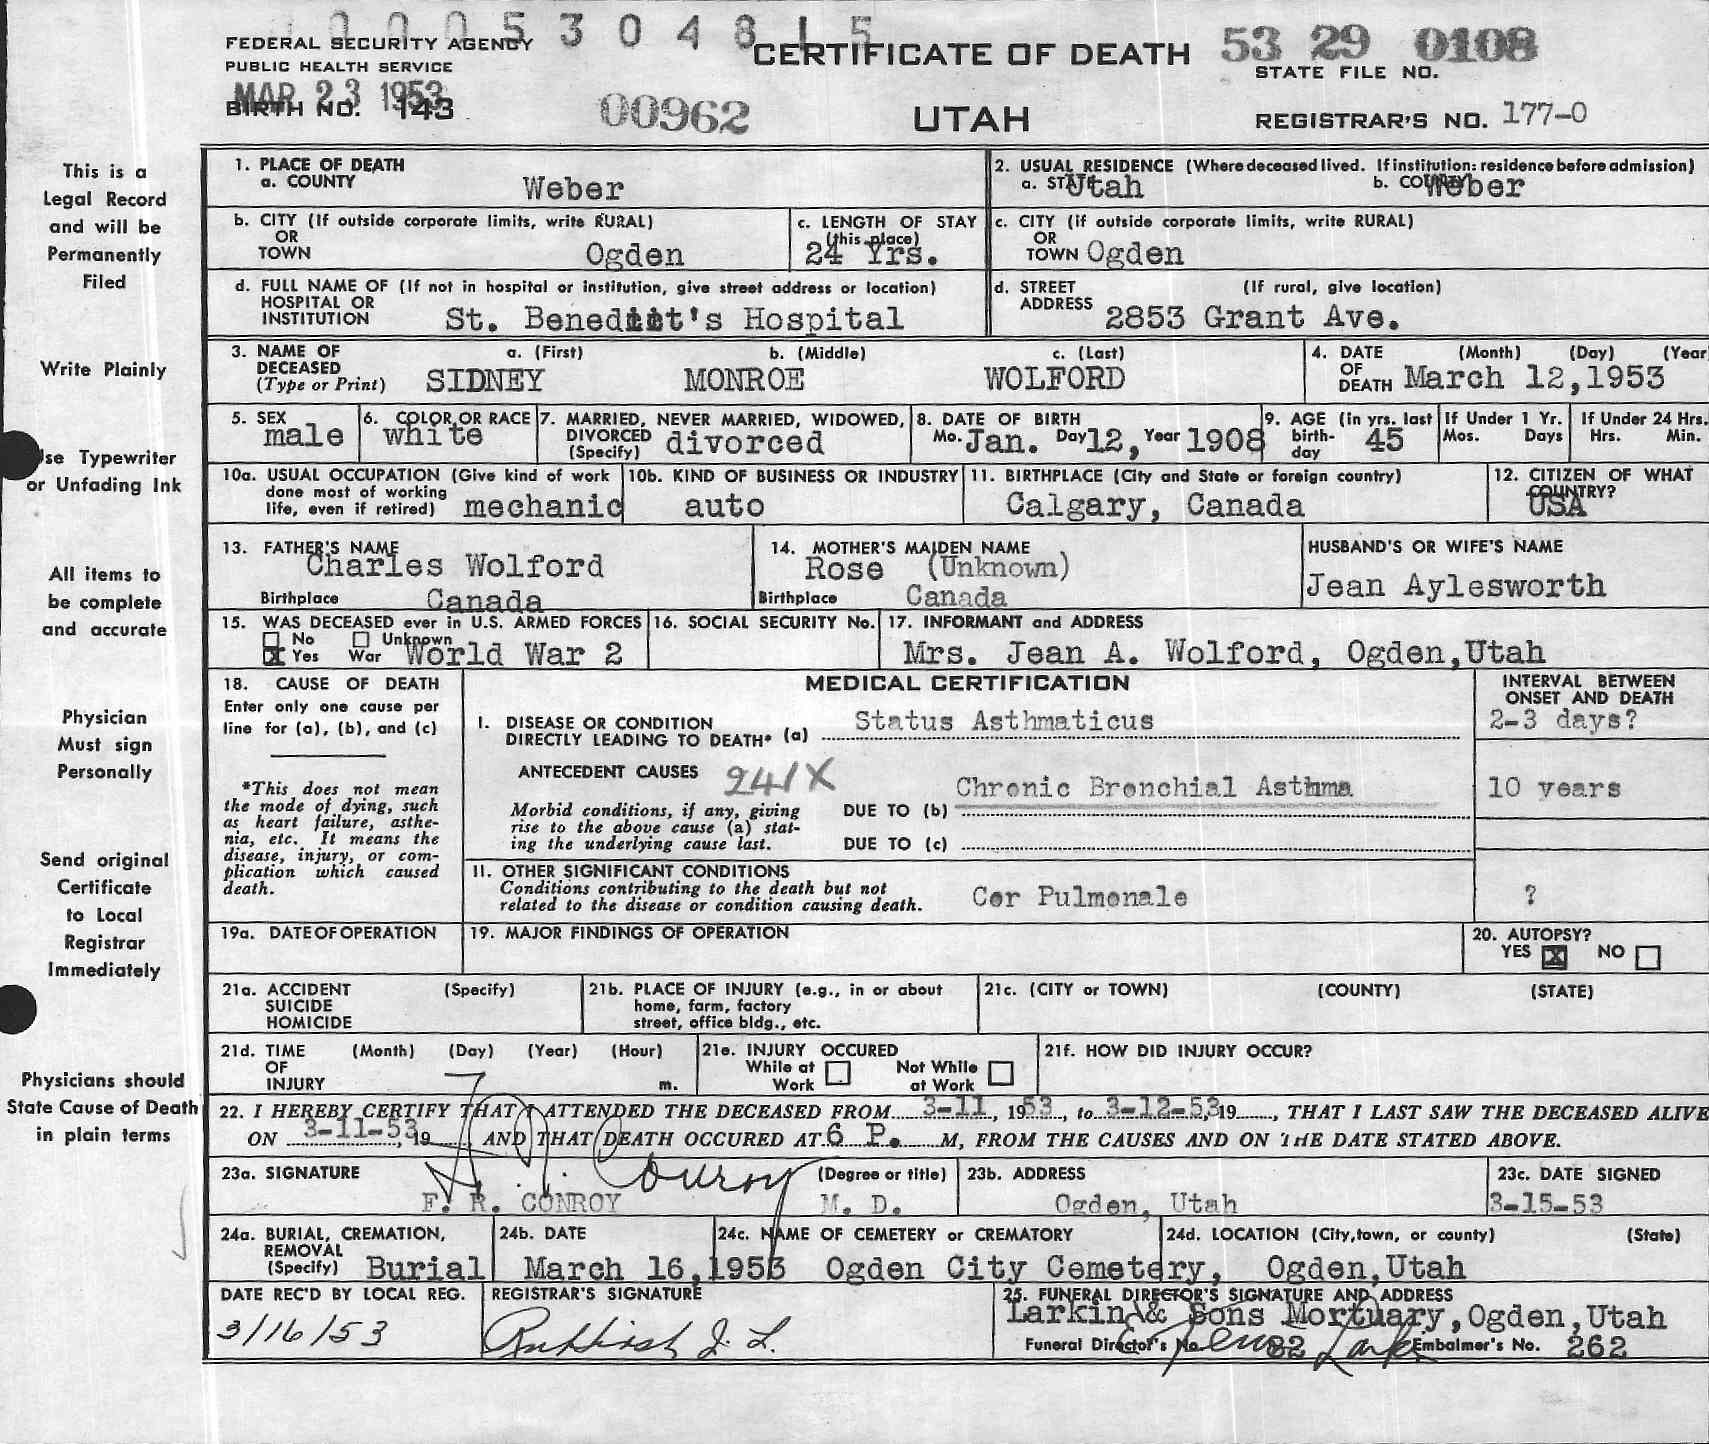 0 0 0 5 3 0 4 8 1 5
FEDERAL SECURITY AGENCY
PUBLIC HEALTH SERVICE
MAR 23 1953
BIRTH NO. 143
00962
CERTIFICATE OF DEATH
UTAH
53 29 0108
STATE FILE NO.
REGISTRAR'S NO. 177-0
This is a
Legal Record
and will be
Permanently
Filed
Write Plainly
Use Typewriter
or Unfading Ink
All items to
be complete
and accurate
Physician
Must sign
Personally
Send original
Certificate
to Local
Registrar
Immediately
Physicians should
State Cause of Death
in plain terms
1. PLACE OF DEATH
a. COUNTY Weber
2. USUAL RESIDENCE (Where deceased lived. If institution: residence before admission)
a. STATE Utah b. COUNTY Weber
b. CITY (If outside corporate limits, write RURAL)
OR
TOWN Ogden
c. LENGTH OF STAY
(this place)
24 Yrs.
c. CITY (if outside corporate limits, write RURAL)
OR
TOWN Ogden
d. FULL NAME OF (If not in hospital or institution, give street address or location)
HOSPITAL OR
INSTITUTION St. Benedict's Hospital
d. STREET (If rural, give location)
ADDRESS 2853 Grant Ave.
3. NAME OF a. (First) b. (Middle) c. (Last)
DECEASED
(Type or Print) SIDNEY MONROE WOLFORD
4. DATE (Month) (Day) (Year
OF
DEATH March 12,1953
5. SEX
male
6. COLOR OR RACE
white
7. MARRIED, NEVER MARRIED, WIDOWED,
DIVORCED
(Specify) divorced
8. DATE OF BIRTH
Mo. Jan. Day 12, Year 1908
9. AGE (in yrs. last
birth-
day 45
If Under 1 Yr.
Mos. Days
If Under 24 Hrs.
Hrs. Min.
10a. USUAL OCCUPATION (Give kind of work
done most of working
life, even if retired) mechanic
10b. KIND OF BUSINESS OR INDUSTRY
auto
11. BIRTHPLACE (City and State or foreign country)
Calgary, Canada
12. CITIZEN OF WHAT
COUNTRY?
USA
13. FATHER'S NAME
Charles Wolford
Birthplace Canada
14. MOTHER'S MAIDEN NAME
Rose (Unknown)
Birthplace Canada
HUSBAND'S OR WIFE'S NAME
Jean Aylesworth
15. WAS DECEASED ever in U.S. ARMED FORCES
No Unknown
X Yes War World War 2
16. SOCIAL SECURITY No.
17. INFORMANT and ADDRESS
Mrs. Jean A. Wolford, Ogden,Utah
18. CAUSE OF DEATH
Enter only one cause per
line for (a), (b), and (c)
*This does not mean
the mode of dying, such
as heart failure, asthe-
nia, etc. It means the
disease, injury, or com-
plication which caused
death.
MEDICAL CERTIFICATION
I. DISEASE OR CONDITION
DIRECTLY LEADING TO DEATH* (a) Status Asthmaticus
ANTECEDENT CAUSES 241X
Morbid conditions, if any, giving
rise to the above cause (a) stat-
ing the underlying cause last.
DUE TO (b) Chronic Bronchial Asthma
DUE TO (c)
11. OTHER SIGNIFICANT CONDITIONS
Conditions contributing to the death but not
related to the disease or condition causing death.
Cor Pulmonale
INTERVAL BETWEEN
ONSET AND DEATH
2-3 days?
10 years
?
19a. DATE OF OPERATION
19. MAJOR FINDINGS OF OPERATION
20. AUTOPSY?
YES X NO
21a. ACCIDENT (Specify)
SUICIDE
HOMICIDE
21b. PLACE OF INJURY (e.g., in or about
home, farm, factory
street, office bldg., etc.
21c. (CITY or TOWN) (COUNTY) (STATE)
21d. TIME (Month) (Day) (Year) (Hour)
OF
INJURY m.
21e. INJURY OCCURED
While at Work
Not While at Work
21f. HOW DID INJURY OCCUR?
22. I HEREBY CERTIFY THAT I ATTENDED THE DECEASED FROM 3-11, 1953, to 3-12-53,19, THAT I LAST SAW THE DECEASED ALIVE
ON 3-11-53, 19 AND THAT DEATH OCCURED AT 6 P. M, FROM THE CAUSES AND ON THE DATE STATED ABOVE.
23a. SIGNATURE (Degree or title)
F. R. CONROY M. D.
23b. ADDRESS
Ogden, Utah
23c. DATE SIGNED
3-15-53
24a. BURIAL, CREMATION,
REMOVAL
(Specify) Burial
24b. DATE
March 16,1953
24c. NAME OF CEMETERY or CREMATORY
Ogden City Cemetery,
24d. LOCATION (City,town, or county) (State)
Ogden,Utah
DATE REC'D BY LOCAL REG.
3/16/53
REGISTRAR'S SIGNATURE
25. FUNERAL DIRECTOR'S SIGNATURE AND ADDRESS
Larkin & Sons Mortuary,Ogden,Utah
Funeral Director's No. 82 Embalmer's No. 262